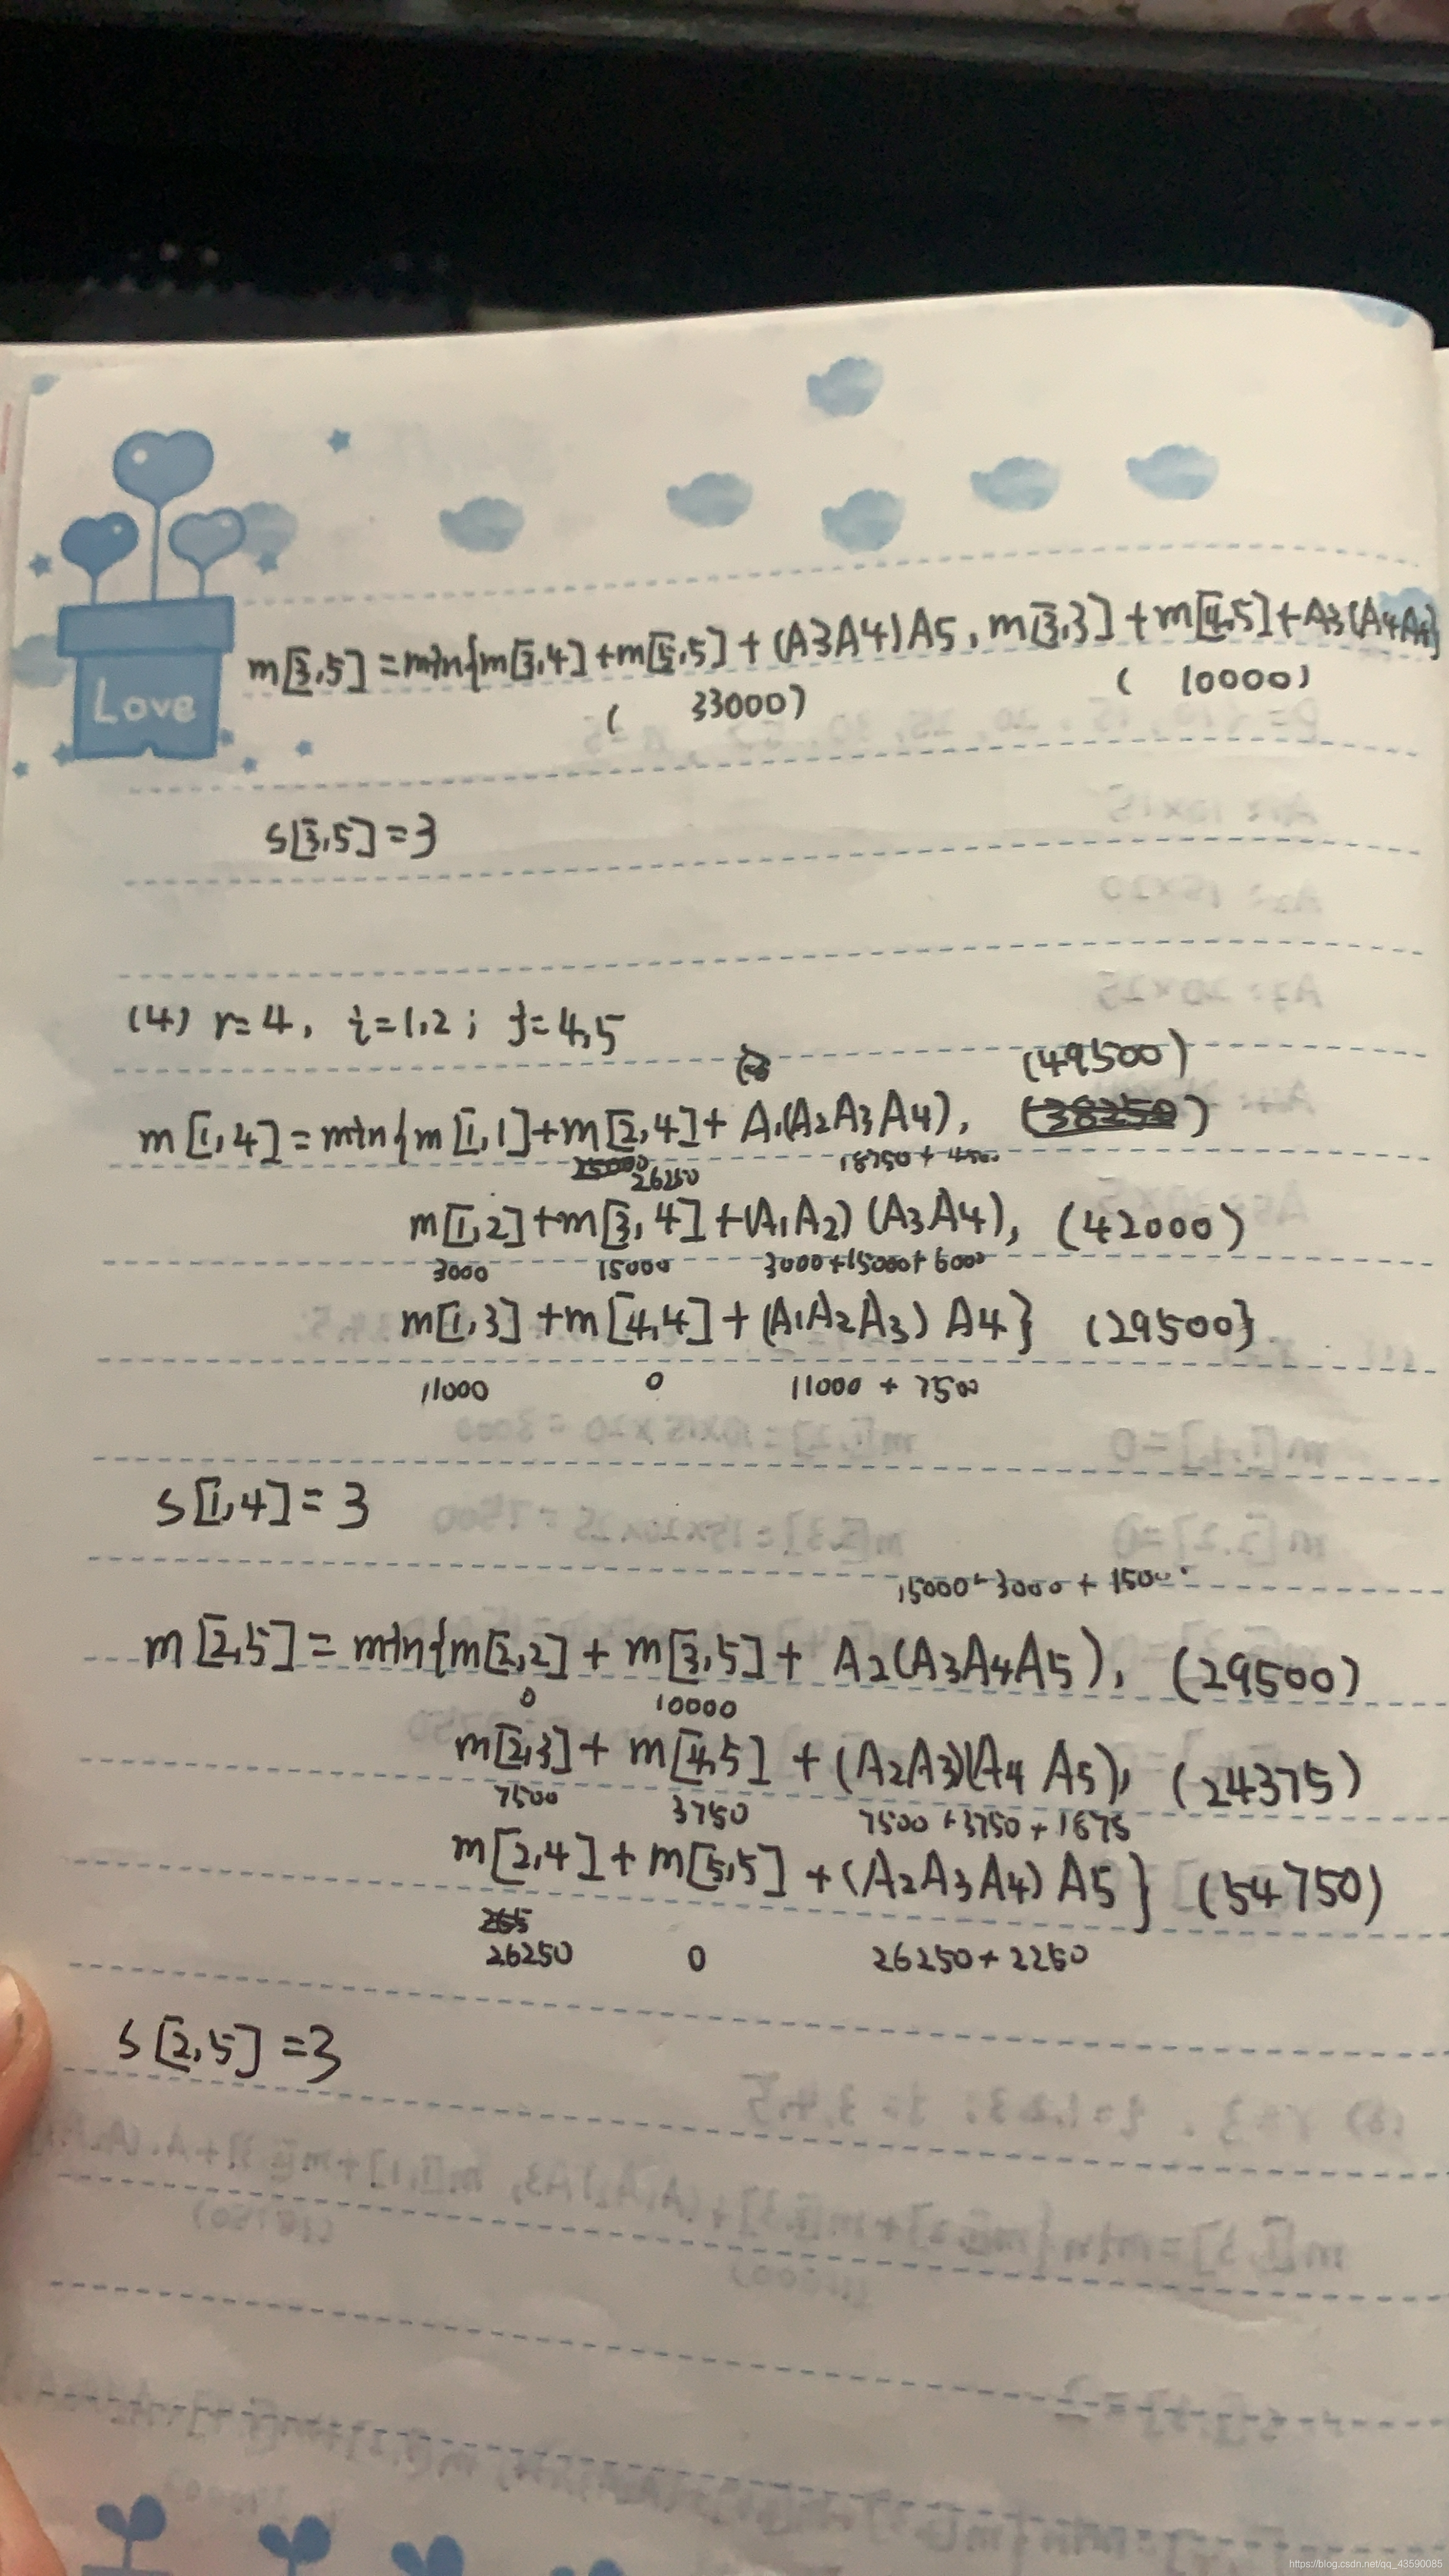 Love
m[3,5]=min{m[3,4]+m[5,5]+(A3A4)A5, m[3,3]+m[4,5]+A3(A4A5)}
( 33000) ( 10000)
s[3,5]=3
(4) r=4, i=1,2; j=4,5
(49500)
m[1,4]=min{m[1,1]+m[2,4]+A1(A2A3A4), (38250)
25000 26250 18750+4500
m[1,2]+m[3,4]+(A1A2)(A3A4), (42000)
3000 15000 3000+15000+6000
m[1,3]+m[4,4]+(A1A2A3)A4} (29500}
11000 0 11000+7500
s[1,4]=3
15000-3000+1500
m[2,5]=min{m[2,2]+m[3,5]+A2(A3A4A5), (29500)
0 10000
m[2,3]+m[4,5]+(A2A3)(A4A5), (24375)
7500 3750 7500+3750+1875
m[2,4]+m[5,5]+(A2A3A4)A5} (54750)
265
26250 0 26250+2250
s[2,5]=3
https://blog.csdn.net/qq_43590085